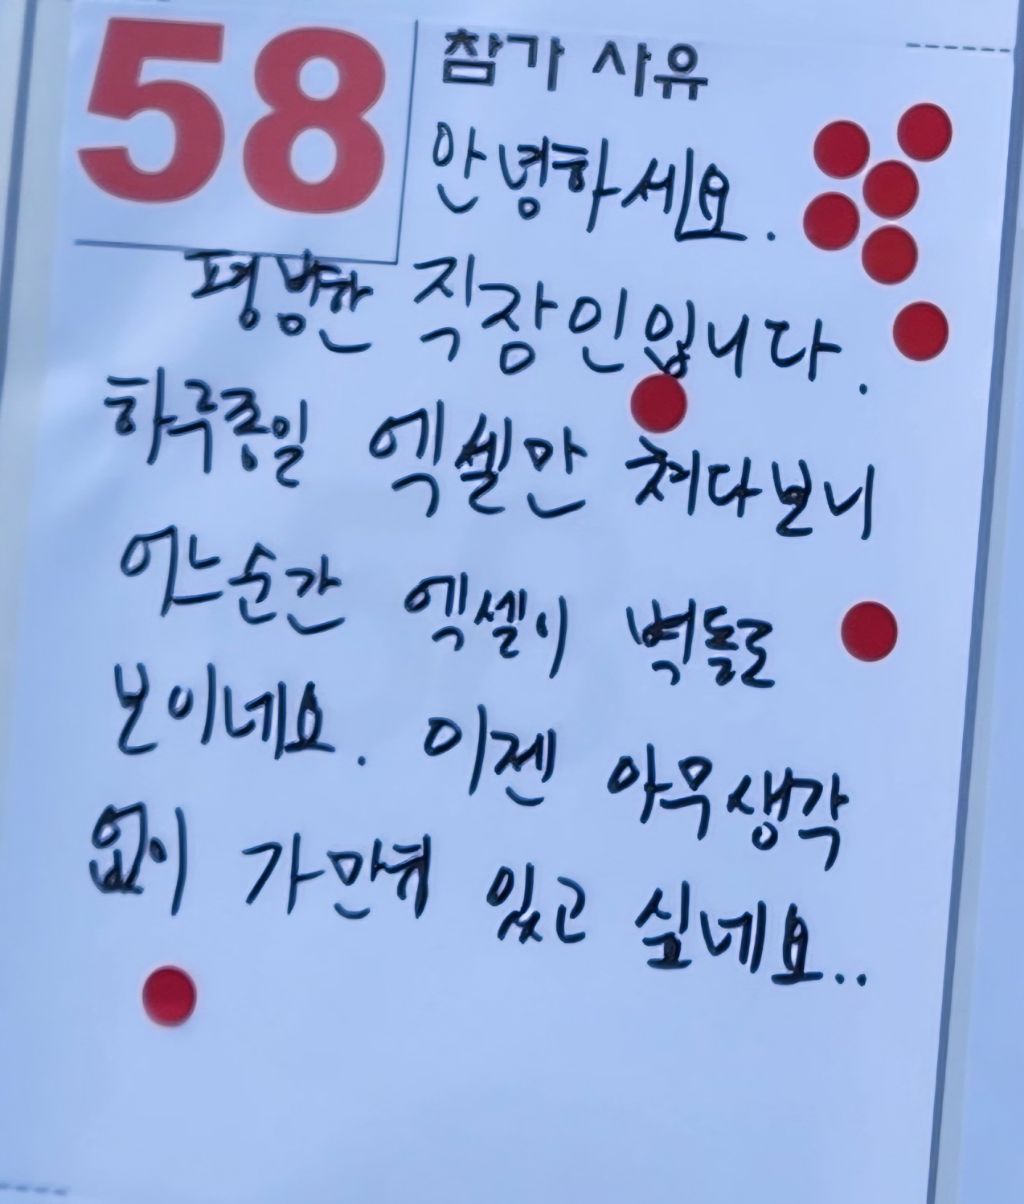 58
참가 사유
안녕하세요.
평범한 직장인입니다.
하루종일 엑셀만 쳐다보니
어느순간 엑셀이 벽돌로
보이네요. 이젠 아무생각
없이 가만히 있고 싶네요..